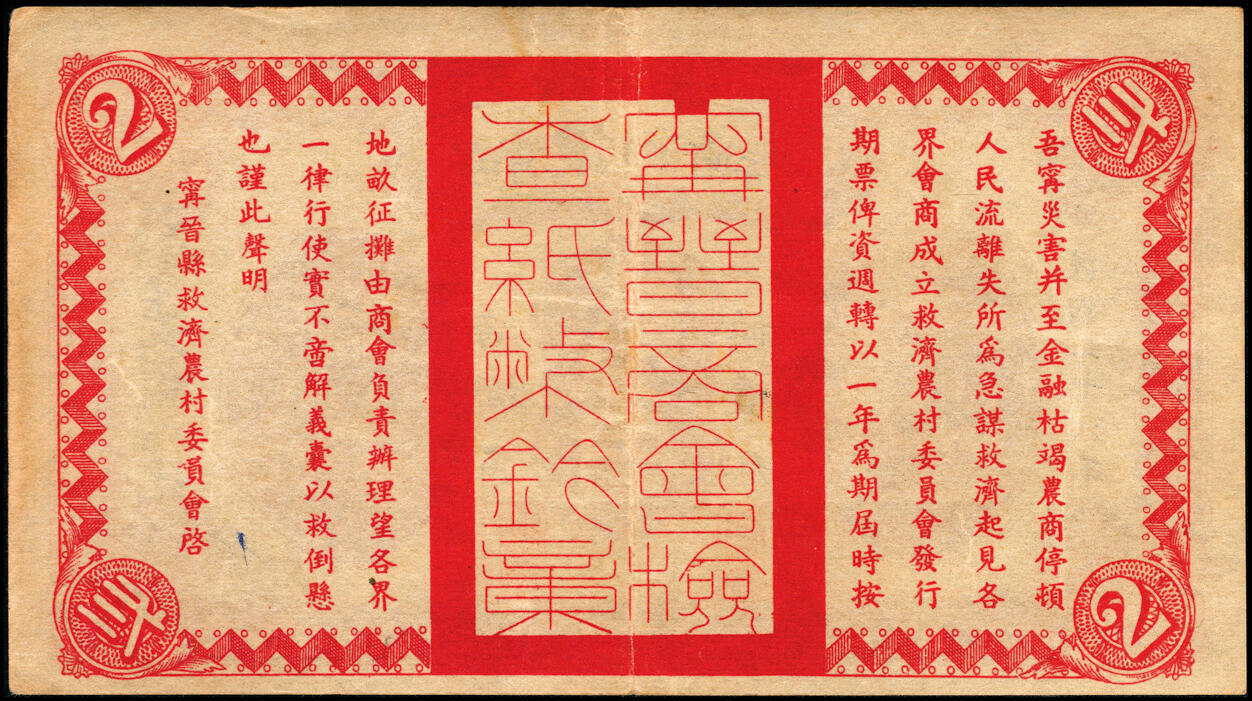 弍
吾甯災害并至金融枯竭農商停頓
人民流離失所爲急謀救濟起見各
界會商成立救濟農村委員會發行
期票俾資週轉以一年爲期屆時按
2
甯晉商會檢
查紙幣鈐章
2
地畝征攤由商會負責辦理望各界
一律行使實不啻解義囊以救倒懸
也謹此聲明
甯晉縣救濟農村委員會啓
弍